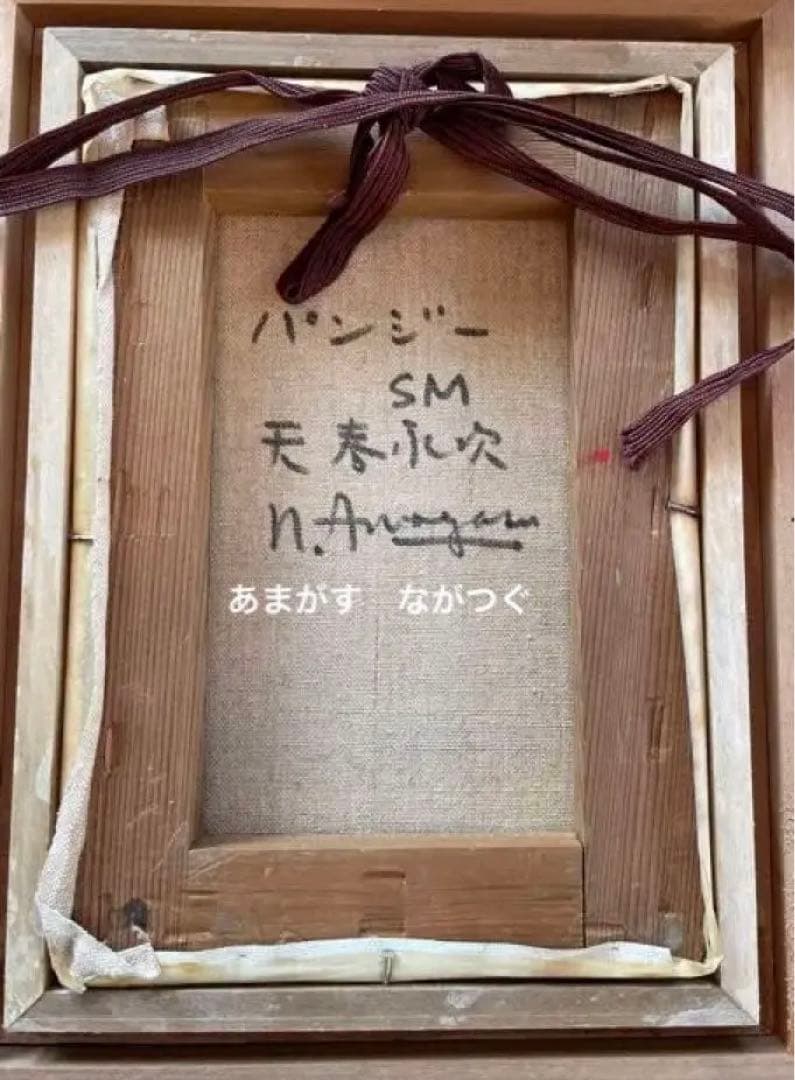 パンジー
SM
天春永次
n. Amagasu
あまがす ながつぐ